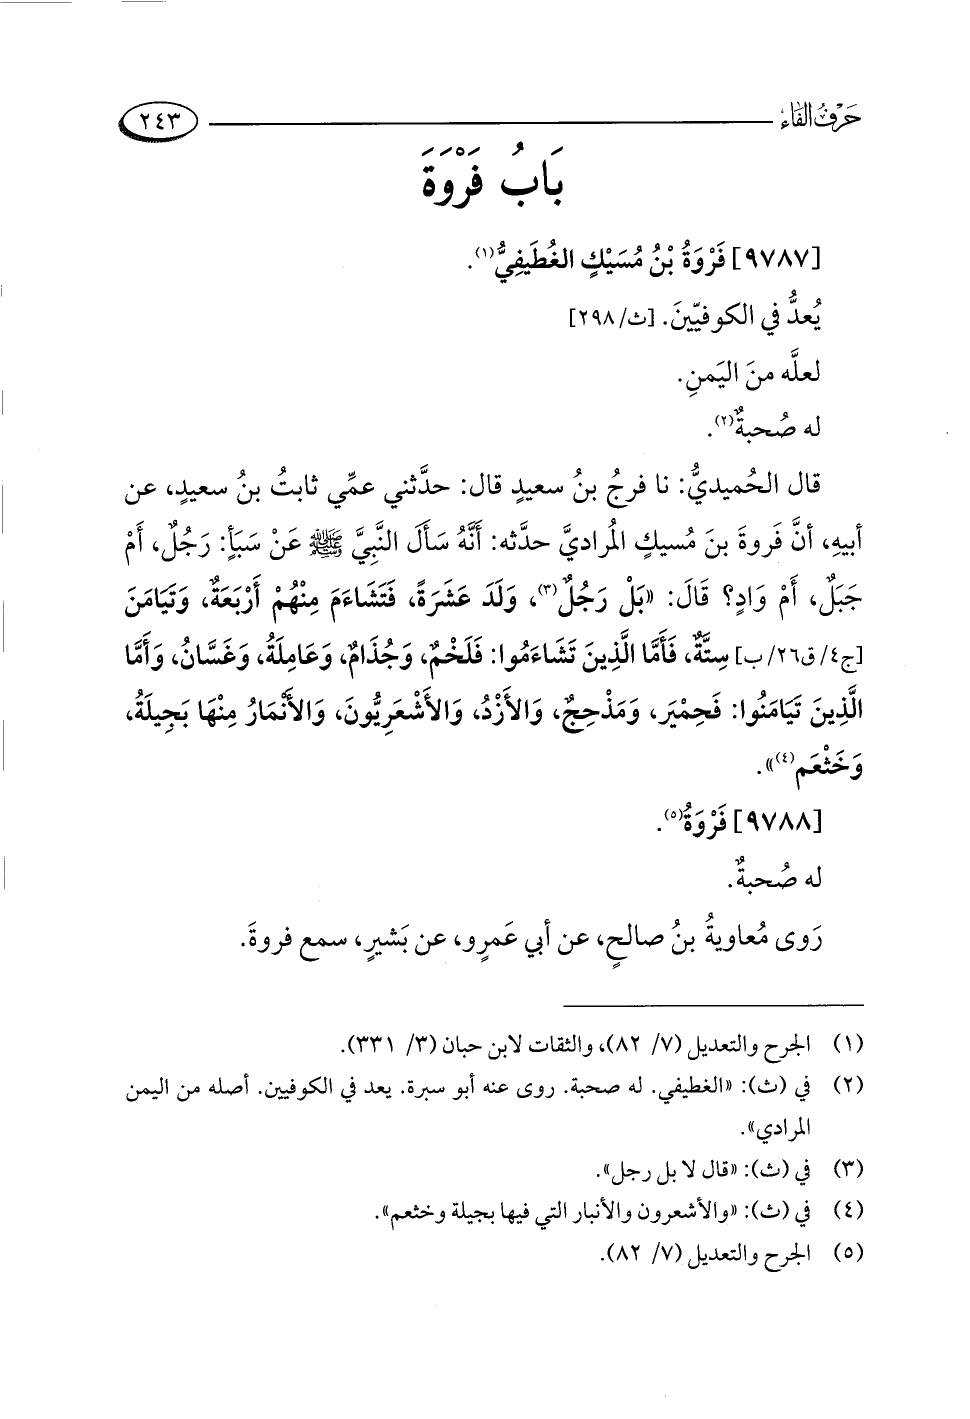 حَرْفُ الفَاء
٢٤٣
بَابُ فَرْوَةَ
[٩٧٨٧] فَرْوَةُ بْنُ مُسَيْكٍ الغُطَيفِيُّ(١).
يُعدُّ في الكوفيّينَ. [ث/٢٩٨]
لعلَّه منَ اليَمنِ.
له صُحبةٌ(٢).
قال الحُميديُّ: نا فرجُ بنُ سعيدٍ قال: حدَّثني عمِّي ثابتُ بنُ سعيدٍ، عن
أبيه، أنَّ فَروةَ بنَ مُسيكٍ المُراديَّ حدَّثه: أَنَّهُ سَأَلَ النَّبِيَّ ﷺ عَنْ سَبَأٍ: رَجُلٌ، أَمْ
جَبَلٌ، أَمْ وَادٍ؟ قَالَ: «بَلْ رَجُلٌ(٣)، وَلَدَ عَشَرَةً، فَتَشَاءَمَ مِنْهُمْ أَرْبَعَةٌ، وَتَيَامَنَ
[ج٤/ق٢٦/ب] سِتَّةٌ، فَأَمَّا الَّذِينَ تَشَاءَمُوا: فَلَخْمٌ، وَجُذَامٌ، وَعَامِلَةُ، وَغَسَّانُ، وَأَمَّا
الَّذِينَ تَيَامَنُوا: فَحِمْيَر، وَمَذْحِجٌ، وَالأَزْدُ، وَالأَشْعَرِيُّونَ، وَالأَنْمَارُ مِنْهَا بَجِيلَةُ،
وَخَثْعَم(٤)».
[٩٧٨٨] فَرْوَةُ(٥).
له صُحبةٌ.
رَوى مُعاويةُ بنُ صالحٍ، عن أبي عَمرٍو، عن بَشيرٍ، سمع فروةَ.
(١) الجرح والتعديل (٧/ ٨٢)، والثقات لابن حبان (٣/ ٣٣١).
(٢) في (ث): «الغطيفي. له صحبة. روى عنه أبو سبرة. يعد في الكوفيين. أصله من اليمن
المرادي».
(٣) في (ث): «قال لا بل رجل».
(٤) في (ث): «والأشعرون والأنبار التي فيها بجيلة وخثعم».
(٥) الجرح والتعديل (٧/ ٨٢).